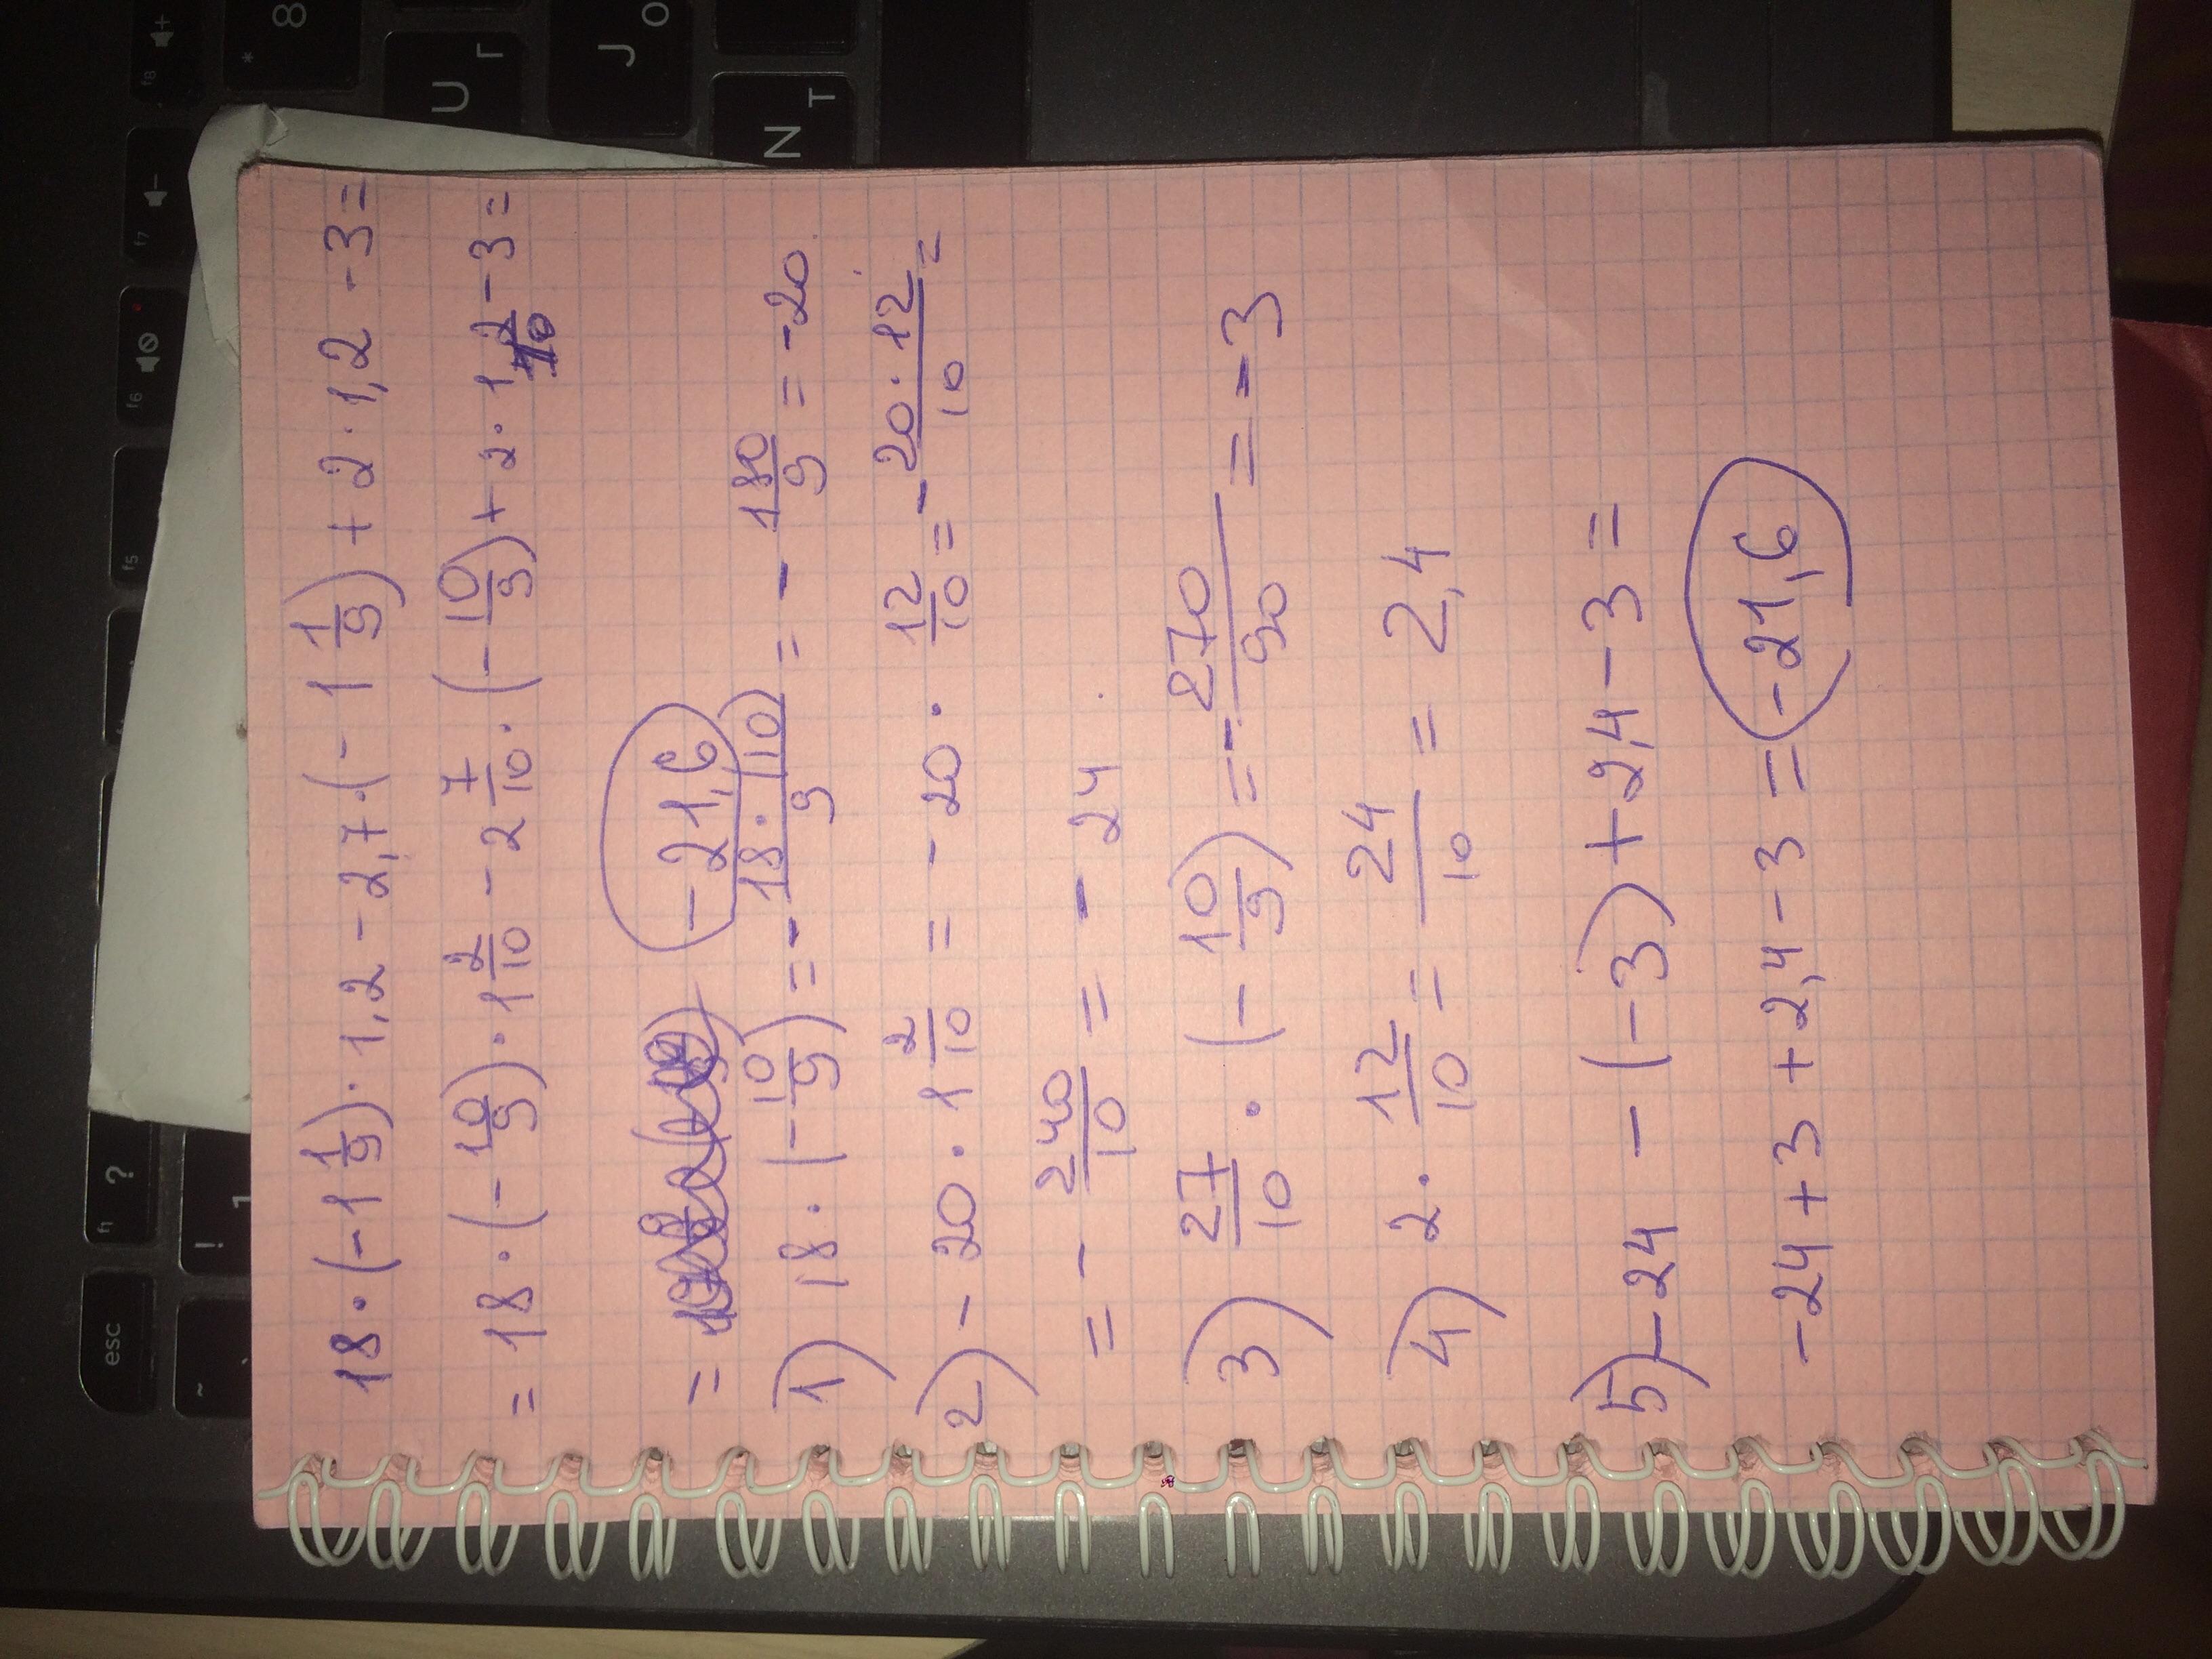 18 · (-1 1/9) · 1,2 - 2,7 · (- 1 1/9) + 2 · 1,2 - 3 =
= 18 · (- 10/9) · 1 2/10 - 2 7/10 · (- 10/9) + 2 · 1 2/10 - 3 =
= - 21,6
1) 18 · (- 10/9) = - 18 · (10)/9 = - 180/9 = -20
2) - 20 · 1 2/10 = - 20 · 12/10 = - 20 · 12/10 =
= - 240/10 = - 24
3) 27/10 · (- 10/9) = - 270/90 = - 3
4) 2 · 12/10 = 24/10 = 2,4
5) -24 - (-3) + 2,4 - 3 =
-24 + 3 + 2,4 - 3 = -21,6
esc
f1
f5
f6
f7
f8
~
!
1
?
*
8
U
Г
J
О
N
Т